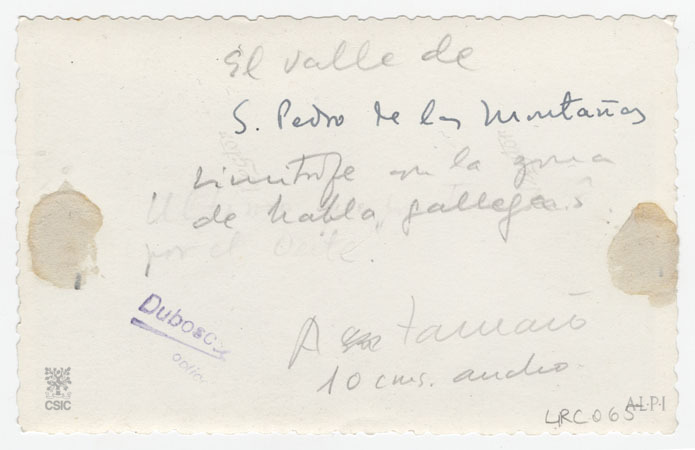 El valle de
S. Pedro de las Montañas
Limitrofe con la zona
de habla gallega
por el Oeste.
Dubosc
A tamaño
10 cms. ancho
CSIC
LRC065
ALPI